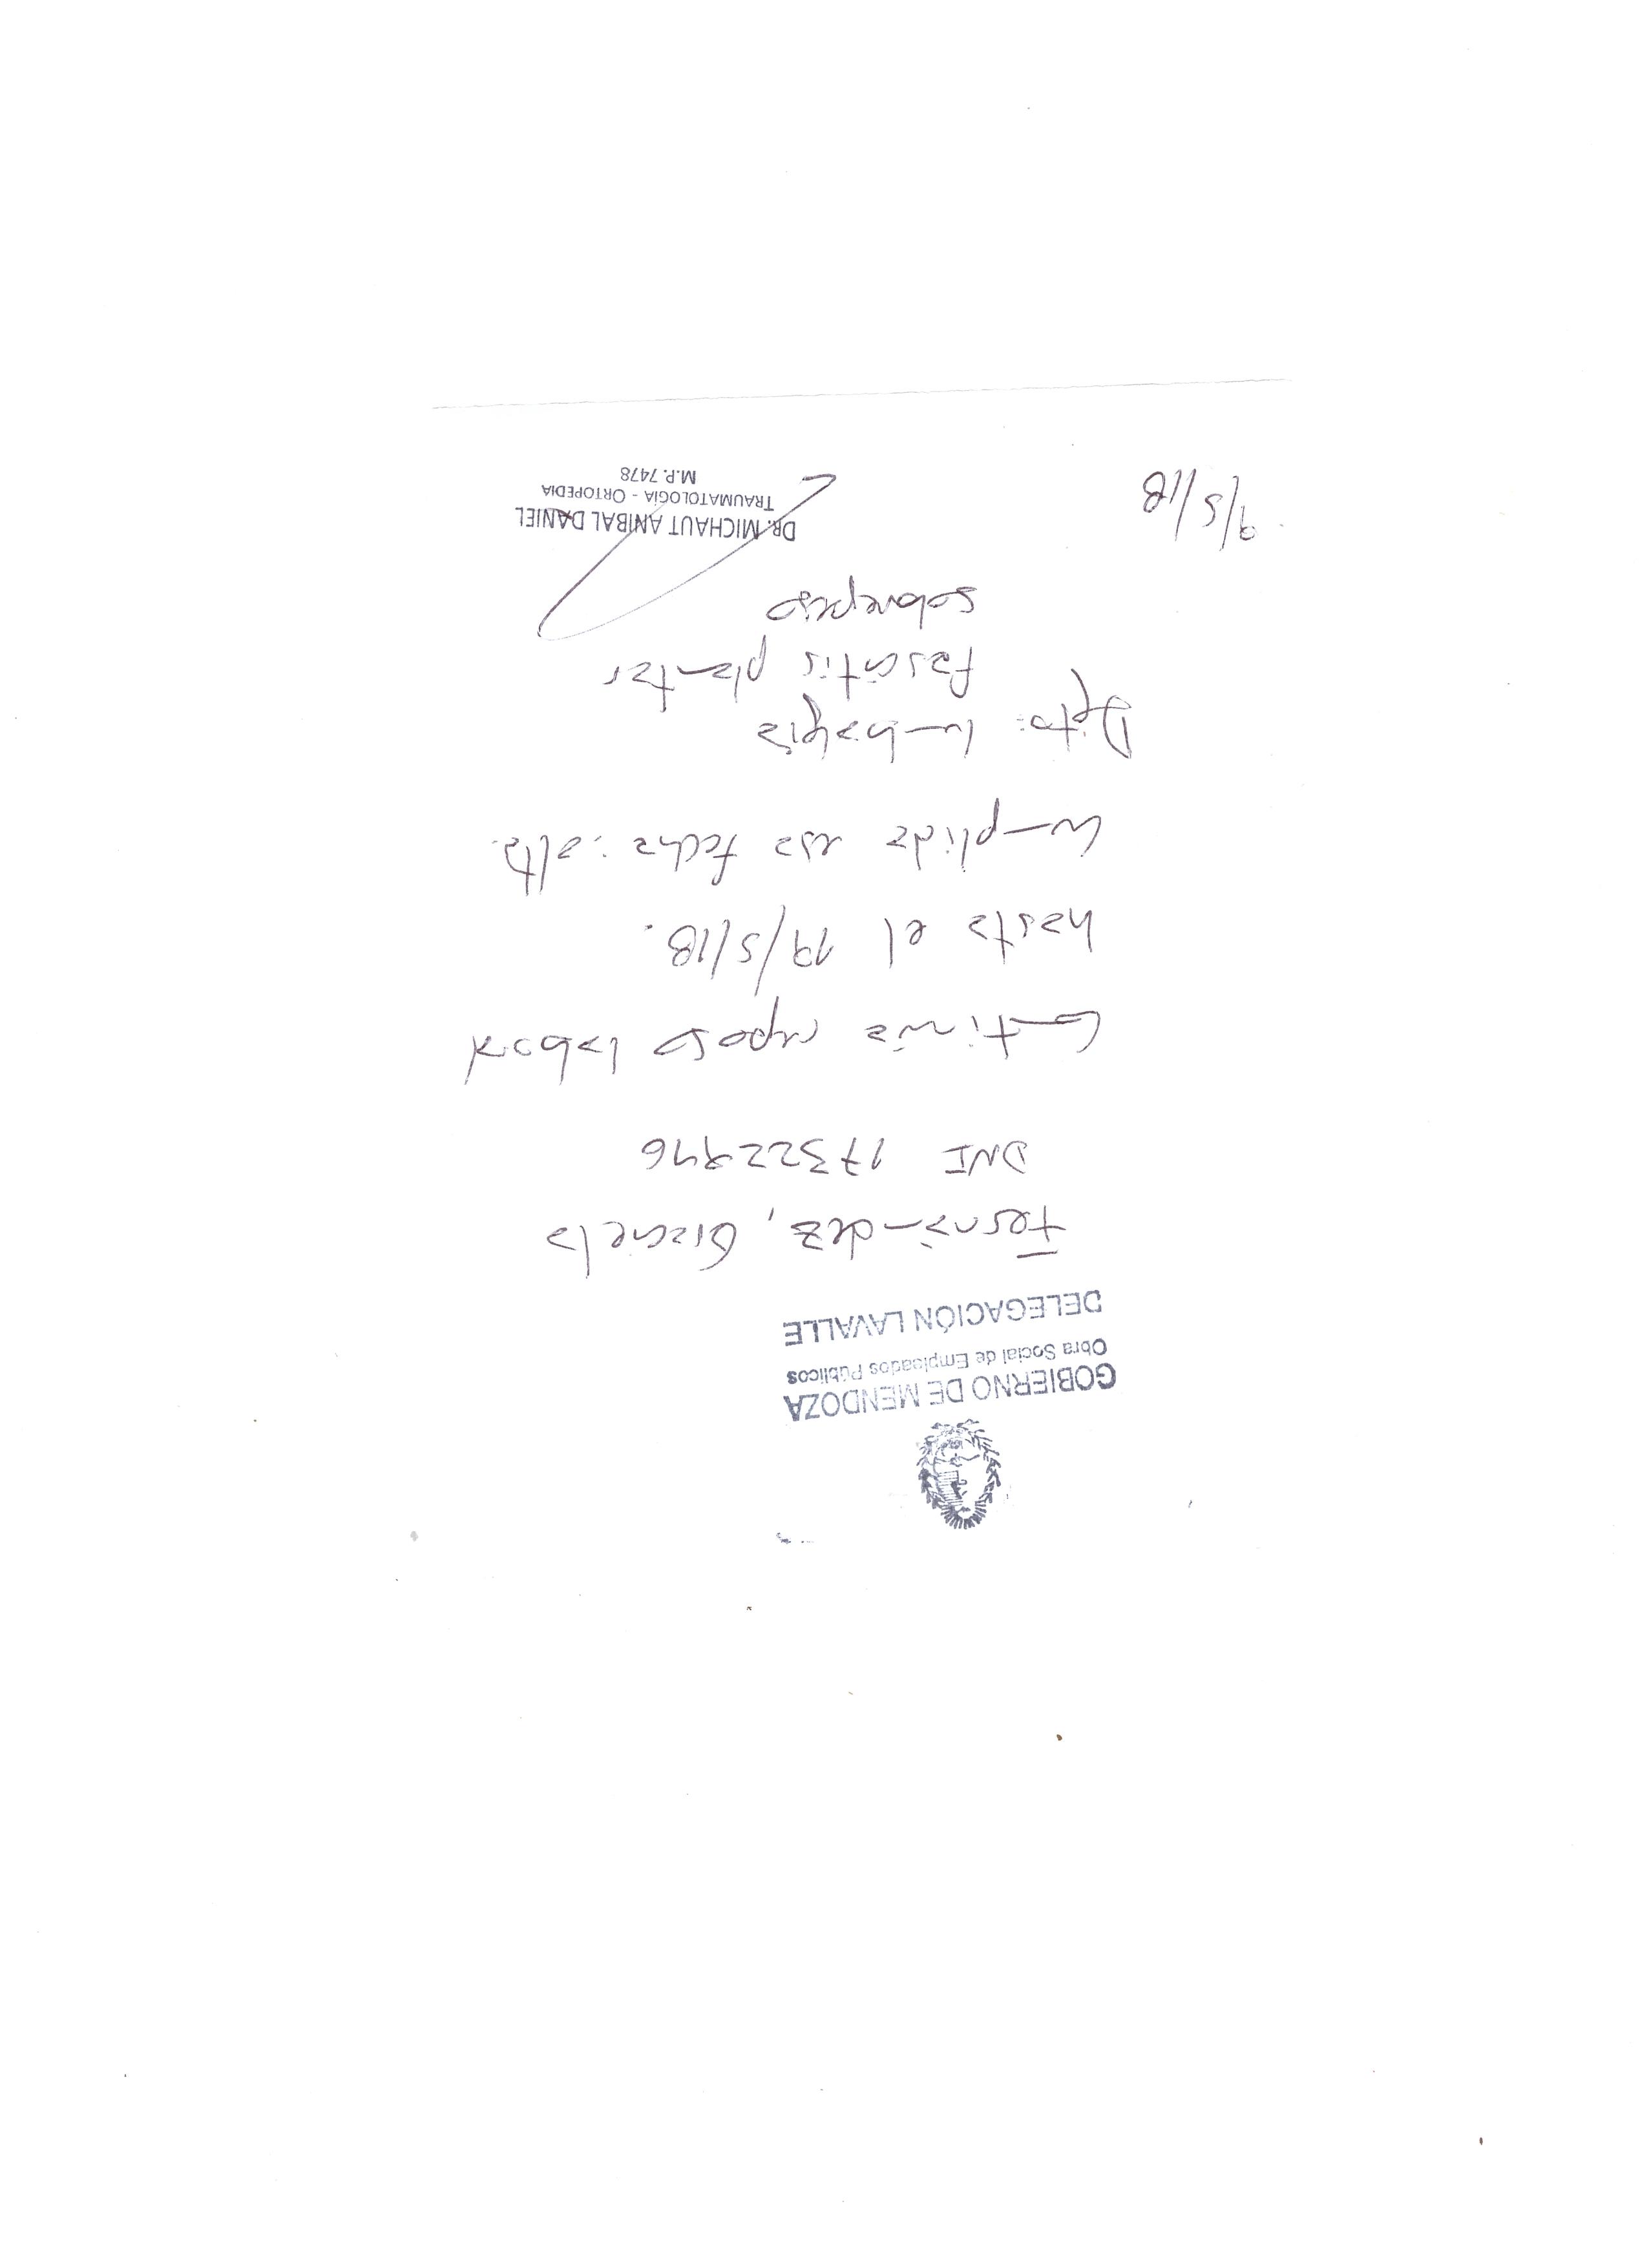 GOBIERNO DE MENDOZA
Obra Social de Empleados Públicos
DELEGACIÓN LAVALLE
Fernández, Graciela
DNI
Continúa reposo laboral
hasta el 19/5/18.
Cumplida esa fecha: alta.
Dgto: lumbalgia
fascitis plantar
sobrepeso
9/5/18
DR. MICHAUT ANIBAL DANIEL
TRAUMATOLOGÍA - ORTOPEDIA
M.P. 7478